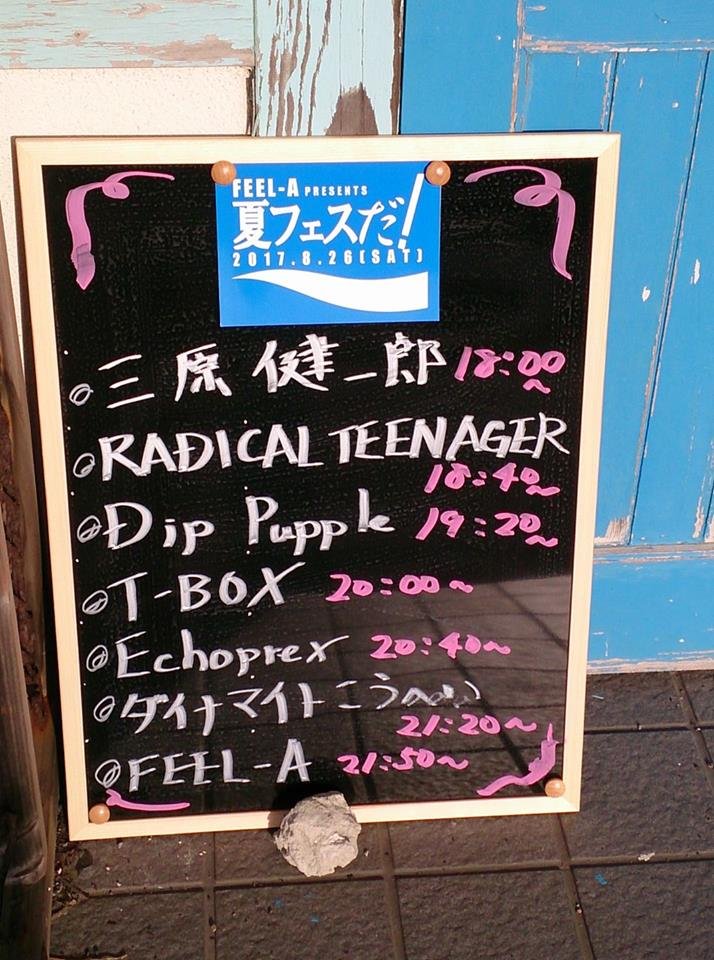 FEEL-A PRESENTS
夏フェスだ!
2017.8.26(SAT)
◎三原健一郎 18:00~
◎RADICAL TEENAGER
18:40~
◎Dip Pupple 19:20~
◎T-BOX 20:00~
◎Echoprex 20:40~
◎ダイナマイトこうへい
21:20~
◎FEEL-A 21:50~